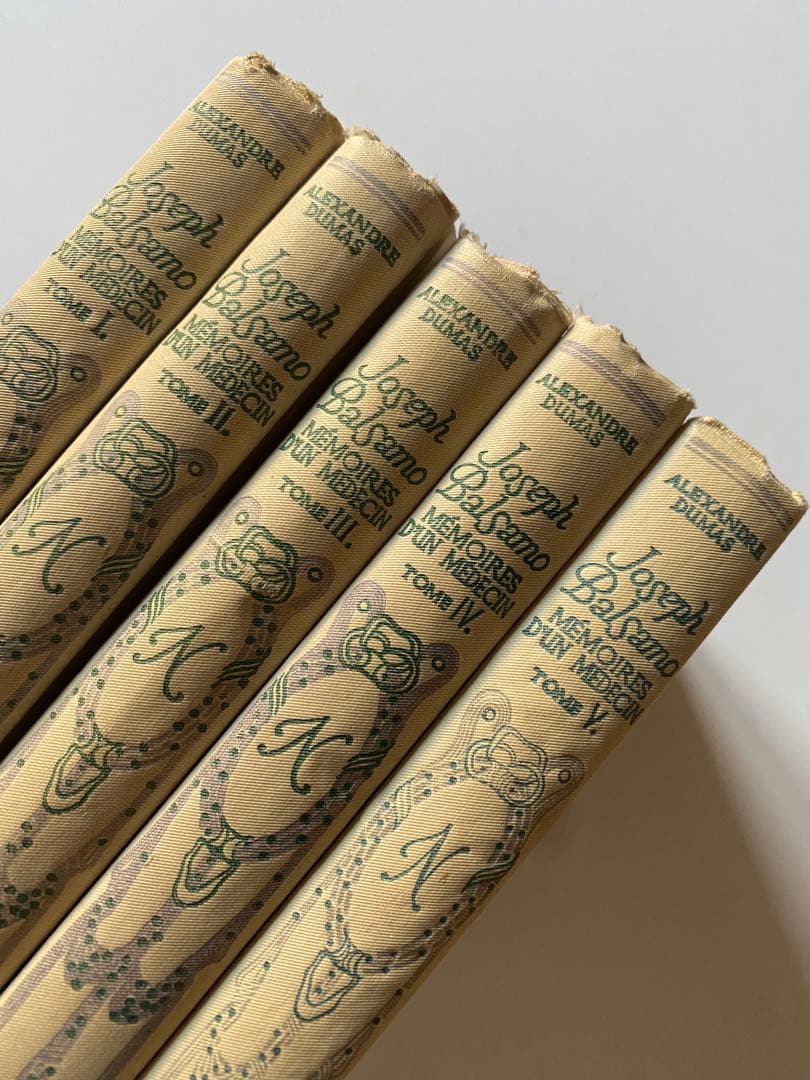 ALEXANDRE
DUMAS
Joseph
Balsamo
MÉMOIRES
D'UN MÉDECIN
TOME I.
ALEXANDRE
DUMAS
Joseph
Balsamo
MÉMOIRES
D'UN MÉDECIN
TOME II.
N
ALEXANDRE
DUMAS
Joseph
Balsamo
MÉMOIRES
D'UN MÉDECIN
TOME III.
N
ALEXANDRE
DUMAS
Joseph
Balsamo
MÉMOIRES
D'UN MÉDECIN
TOME IV.
N
ALEXANDRE
DUMAS
Joseph
Balsamo
MÉMOIRES
D'UN MÉDECIN
TOME V.
N